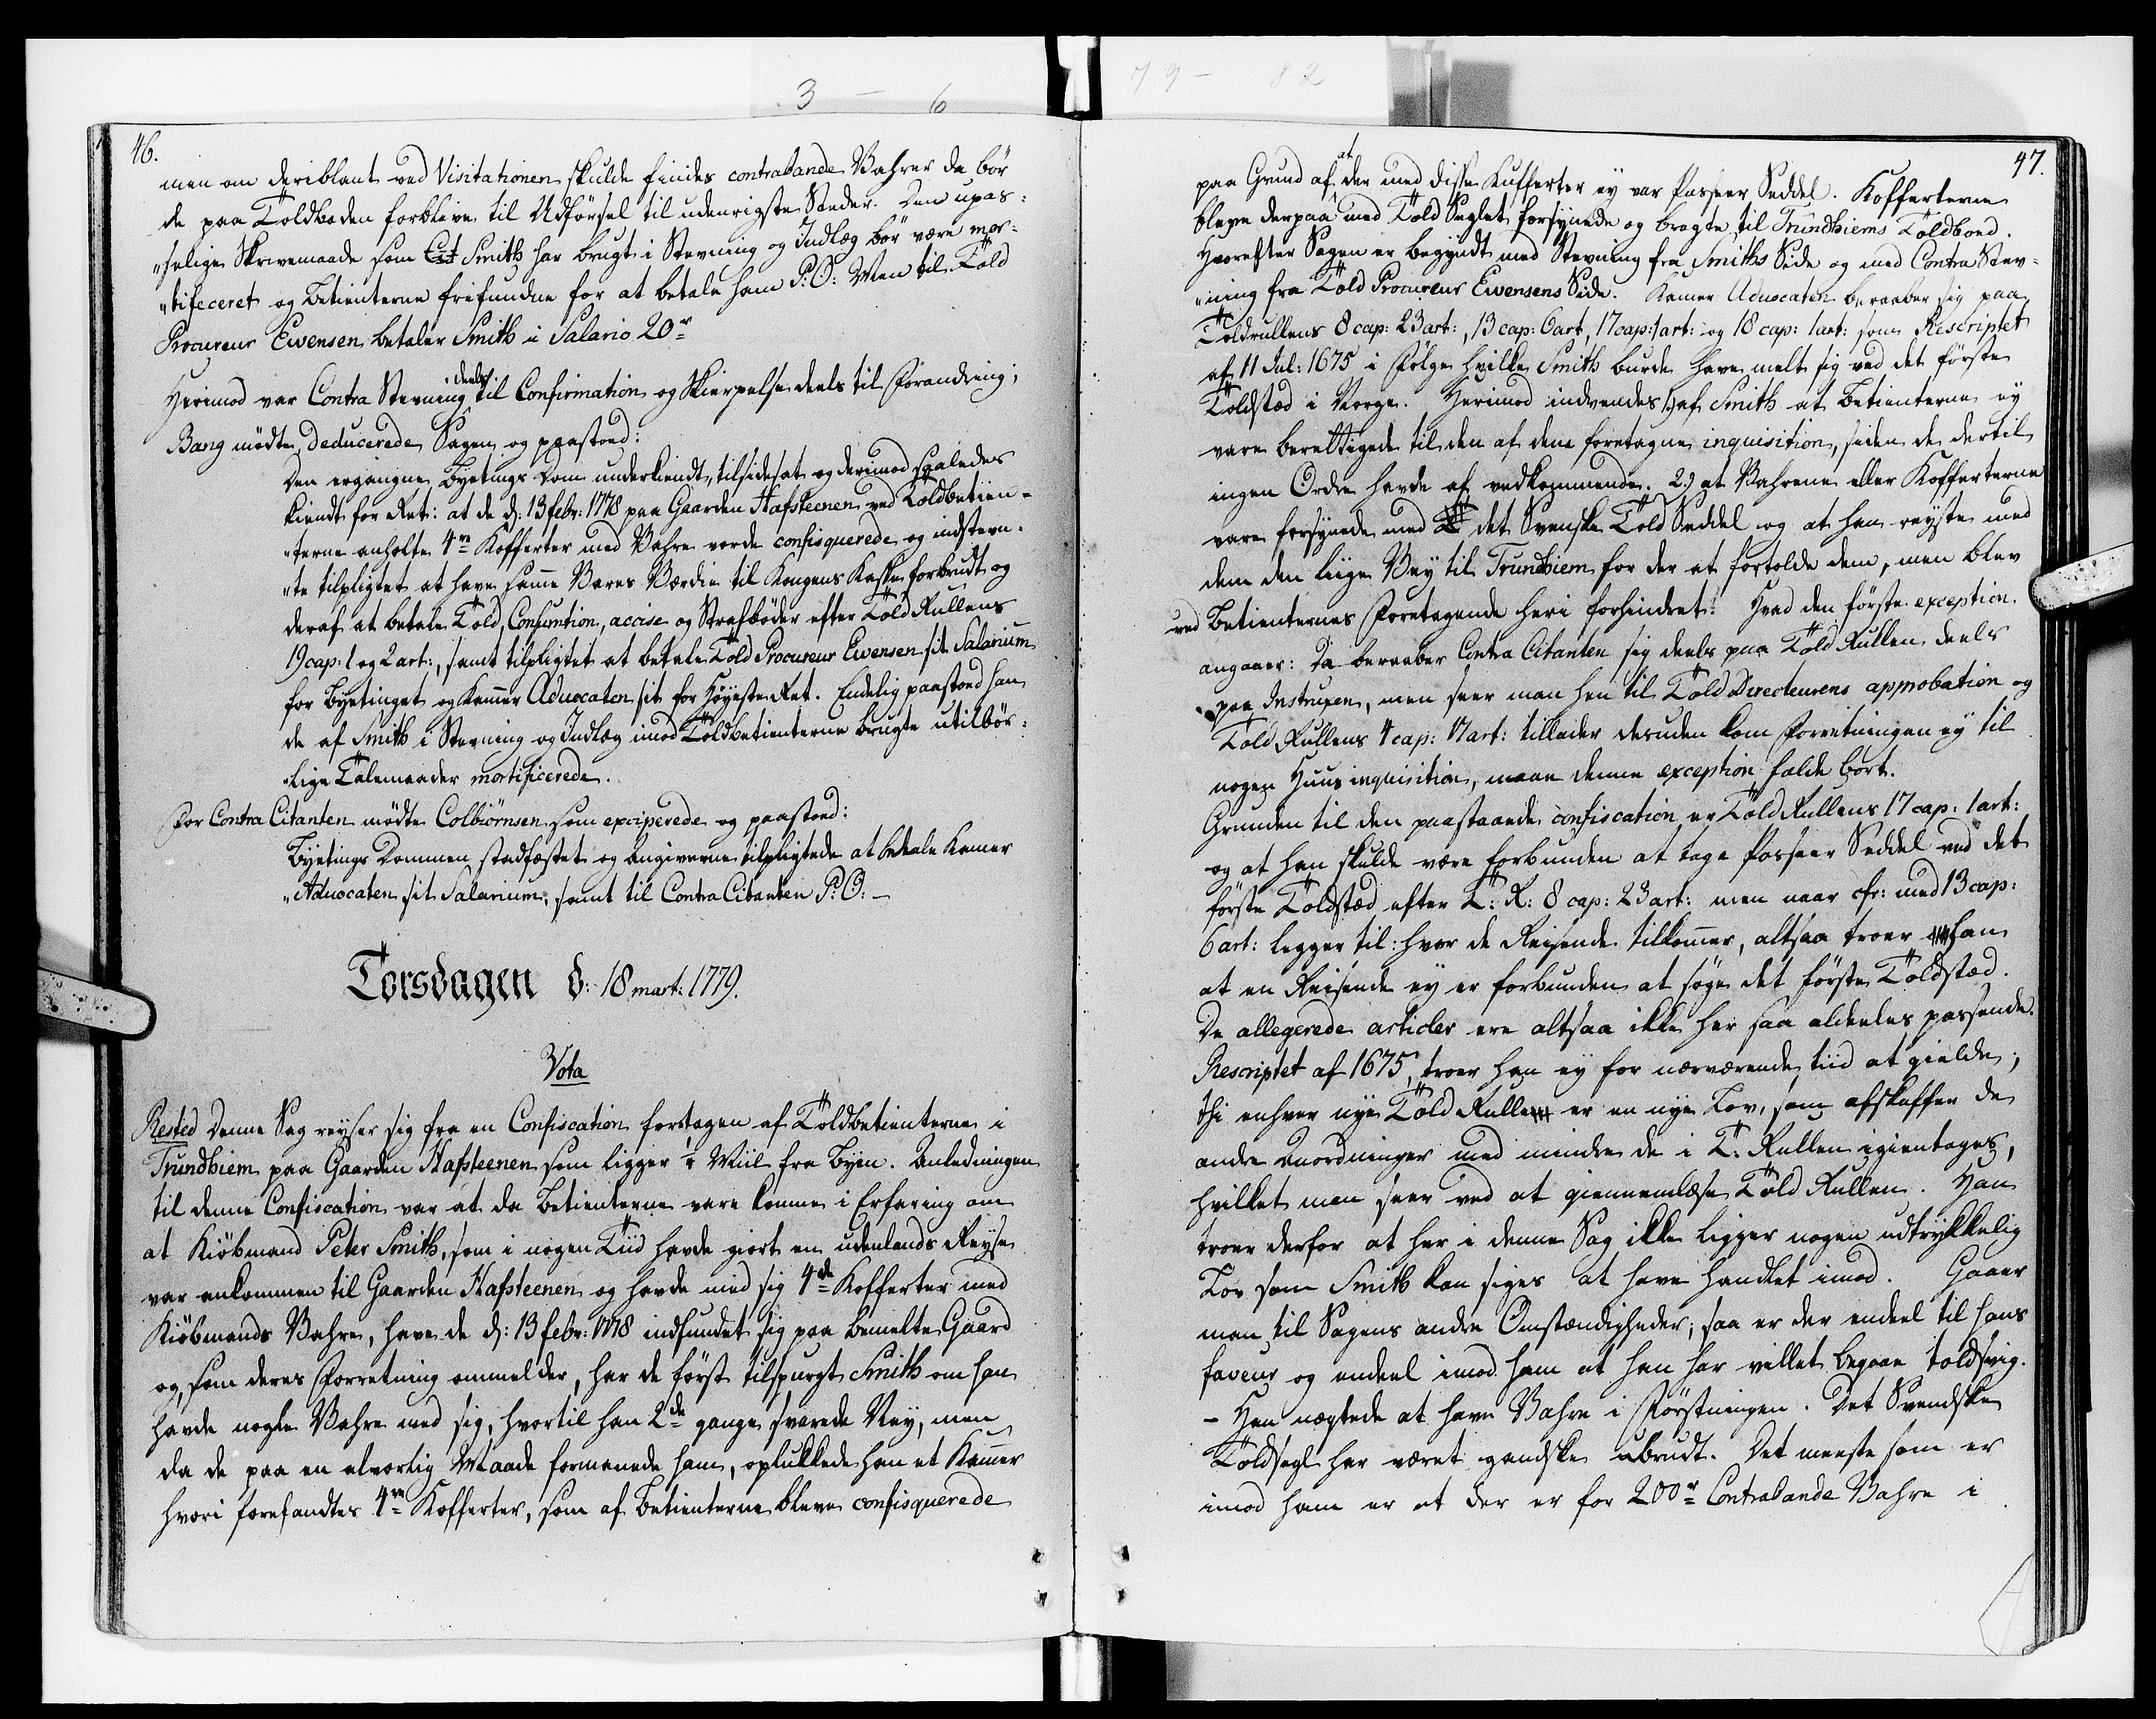 3 — 6
79 - 82
46.
men om deriblant ved Visitationen skulde findes contrabande Vahrer da bör
de paa Toldboden forblive til Udförsel til udenrigste Steder. Den upas:
"selige Skrivemaade som Cit Smith har brugt i Stevning og Indlæg bör være mor:
"tificeret og Betienterne frifundne for at betale ham P: O: Men til Told
Procureur Ewensen betaler Smith i Salario 20 rd
Herimod var Contra Stevning deels til Confirmation og Skierpelse deels til Forandring;
Bang mödte, deducerede Sagen og paastoed:
Den ergangne Byetings Dom underkiendt, tilsidesat og derimod saaledes
kiendt for Ret: at de d: 13 febr: 1778 paa Gaarden Hafsteenen ved Toldbetien-
"terne anholte 4re Kofferter med Vahre vorde confisquerede og indstevn-
"te tilpligtet at have samme Vares Værdie til Kongens Kasse forbrudt og
deraf at betale Told, Consumtion, accise og Strafböder efter Told Rullens
19 cap: 1 og 2 art:, samt tilpligtet at betale Told Procureur Ewensen sit Salarium
for Byetinget og Kammer Advocaten sit for Höyeste Ret. Endelig paastoed han
de af Smith i Stevning og Indlæg imod Toldbetienterne brugte utilbör:
"lige Talemaader mortificerede.
For Contra Citanten mödte Colbiörnsen som exciperede og paastoed:
Byetings Dommen stadfæstet og Angiverne tilpligtede at betale Kamer
"Advocaten sit Salarium, samt til Contra Citanten P: O: —
Torsdagen d: 18 mart: 1779.
Vota
Rested Denne Sag reyser sig fra en Confiscation foretagen af Toldbetienterne i
Trundhiem paa Gaarden Hafsteenen som ligger Miil fra Byen. Anledningen
til denne Confiscation var at da Betienterne vare komne i Erfaring om
at Kiöbmand Peter Smith, som i nogen Tiid havde giort en udenlands Reyse
var ankommen til Gaarden Hafsteenen og havde med sig 4de Kofferter med
Kiöbmands Vahre, have de d: 13 febr: 1778 indfundet sig paa bemelte Gaard
og, som deres Forretning ommelder, har de först tilspurgt Smith om han
havde nogle Vahre med sig, hvortil han 2de gange svarede Ney, men
da de paa en alvorlig Maade formanede ham, oplukkede han et Kammer
hvori forefandtes 4re Kofferter, som af Betienterne bleve confisquerede
47.
paa Grund af at der med disse Kufferter ey var Passeer Seddel. Kofferterne
bleve derpaa med Told Seglet forsynede og bragte til Trundhiems Toldboed.
Hvorefter Sagen er begyndt med Stevning fra Smiths Side og med Contra Stev-
"ning fra Told Procureur Ewensens Side. Kamer Advocaten beraaber sig paa
Toldrullens 8 cap: 23 art:, 13 cap: 6 art, 17 cap: 1 art: og 18 cap: 1 art: som Rescriptet
af 11 Jul: 1675 i Fölge hvilke Smith burde have melt sig ved det förste
Toldsted i Norge. Herimod indvendes 1) af Smith at Betienterne ey
vare berettigede til den af dem foretagne inquisition, siden de dertil
ingen Ordre havde af vedkommende. 2) at Vahrene eller Kofferterne
vare forsynede med det Svenske Told Seddel og at han reyste med
dem den liige Vey til Trundhiem for der at fortolde dem, men blev
ved Betienternes Foretagende heri forhindret. Hvad den förste exception
angaaer: Da beraaber Contra Citanten sig deels paa Told Rullen deels
paa Instruxen, men seer man hen til Told Directeurens approbation og
Told Rullens 4 cap: 17 art: tillader desuden kom Forretningen ey til
nogen Huus inquisition, maae denne exception falde bort.
Grunden til den paastaaede confiscation er Told Rullens 17 cap: 1 art:
og at han skulde være forbunden at tage Passeer Seddel ved det
förste Toldsted efter T: R: 8 cap: 23 art: men naar cfr: med 13 cap:
6 art: legger til: hvor de Reisende tilkommer, altsaa troer han
at en Reisende ey er forbunden at söge det förste Toldsted.
De allegerede articler ere altsaa ikke her saa aldeeles passende.
Rescriptet af 1675, troer han ey for nærværende tiid at gielde;
thi enhver nye Told Rulle er en nye Lov, som afskaffer de
andre Anordninger med mindre de i T: Rullen igientages,
hvilket man seer ved at giennemlæse Told Rullen. Han
troer derfor at her i denne Sag ikke ligger nogen udtrykkelig
Lov som Smith kan siges at have handlet imod. Gaaer
man til Sagens andre Omstændigheder; saa er der endeel til hans
faveur og endeel imod ham at han har villet begaae toldsvig.
– Han nægtede at have Vahre i Förstningen. Det Svendske
Toldsegl har været gandske ubrudt. Det meeste som er
imod ham er at der er for 200 rd Contrabande Vahre i